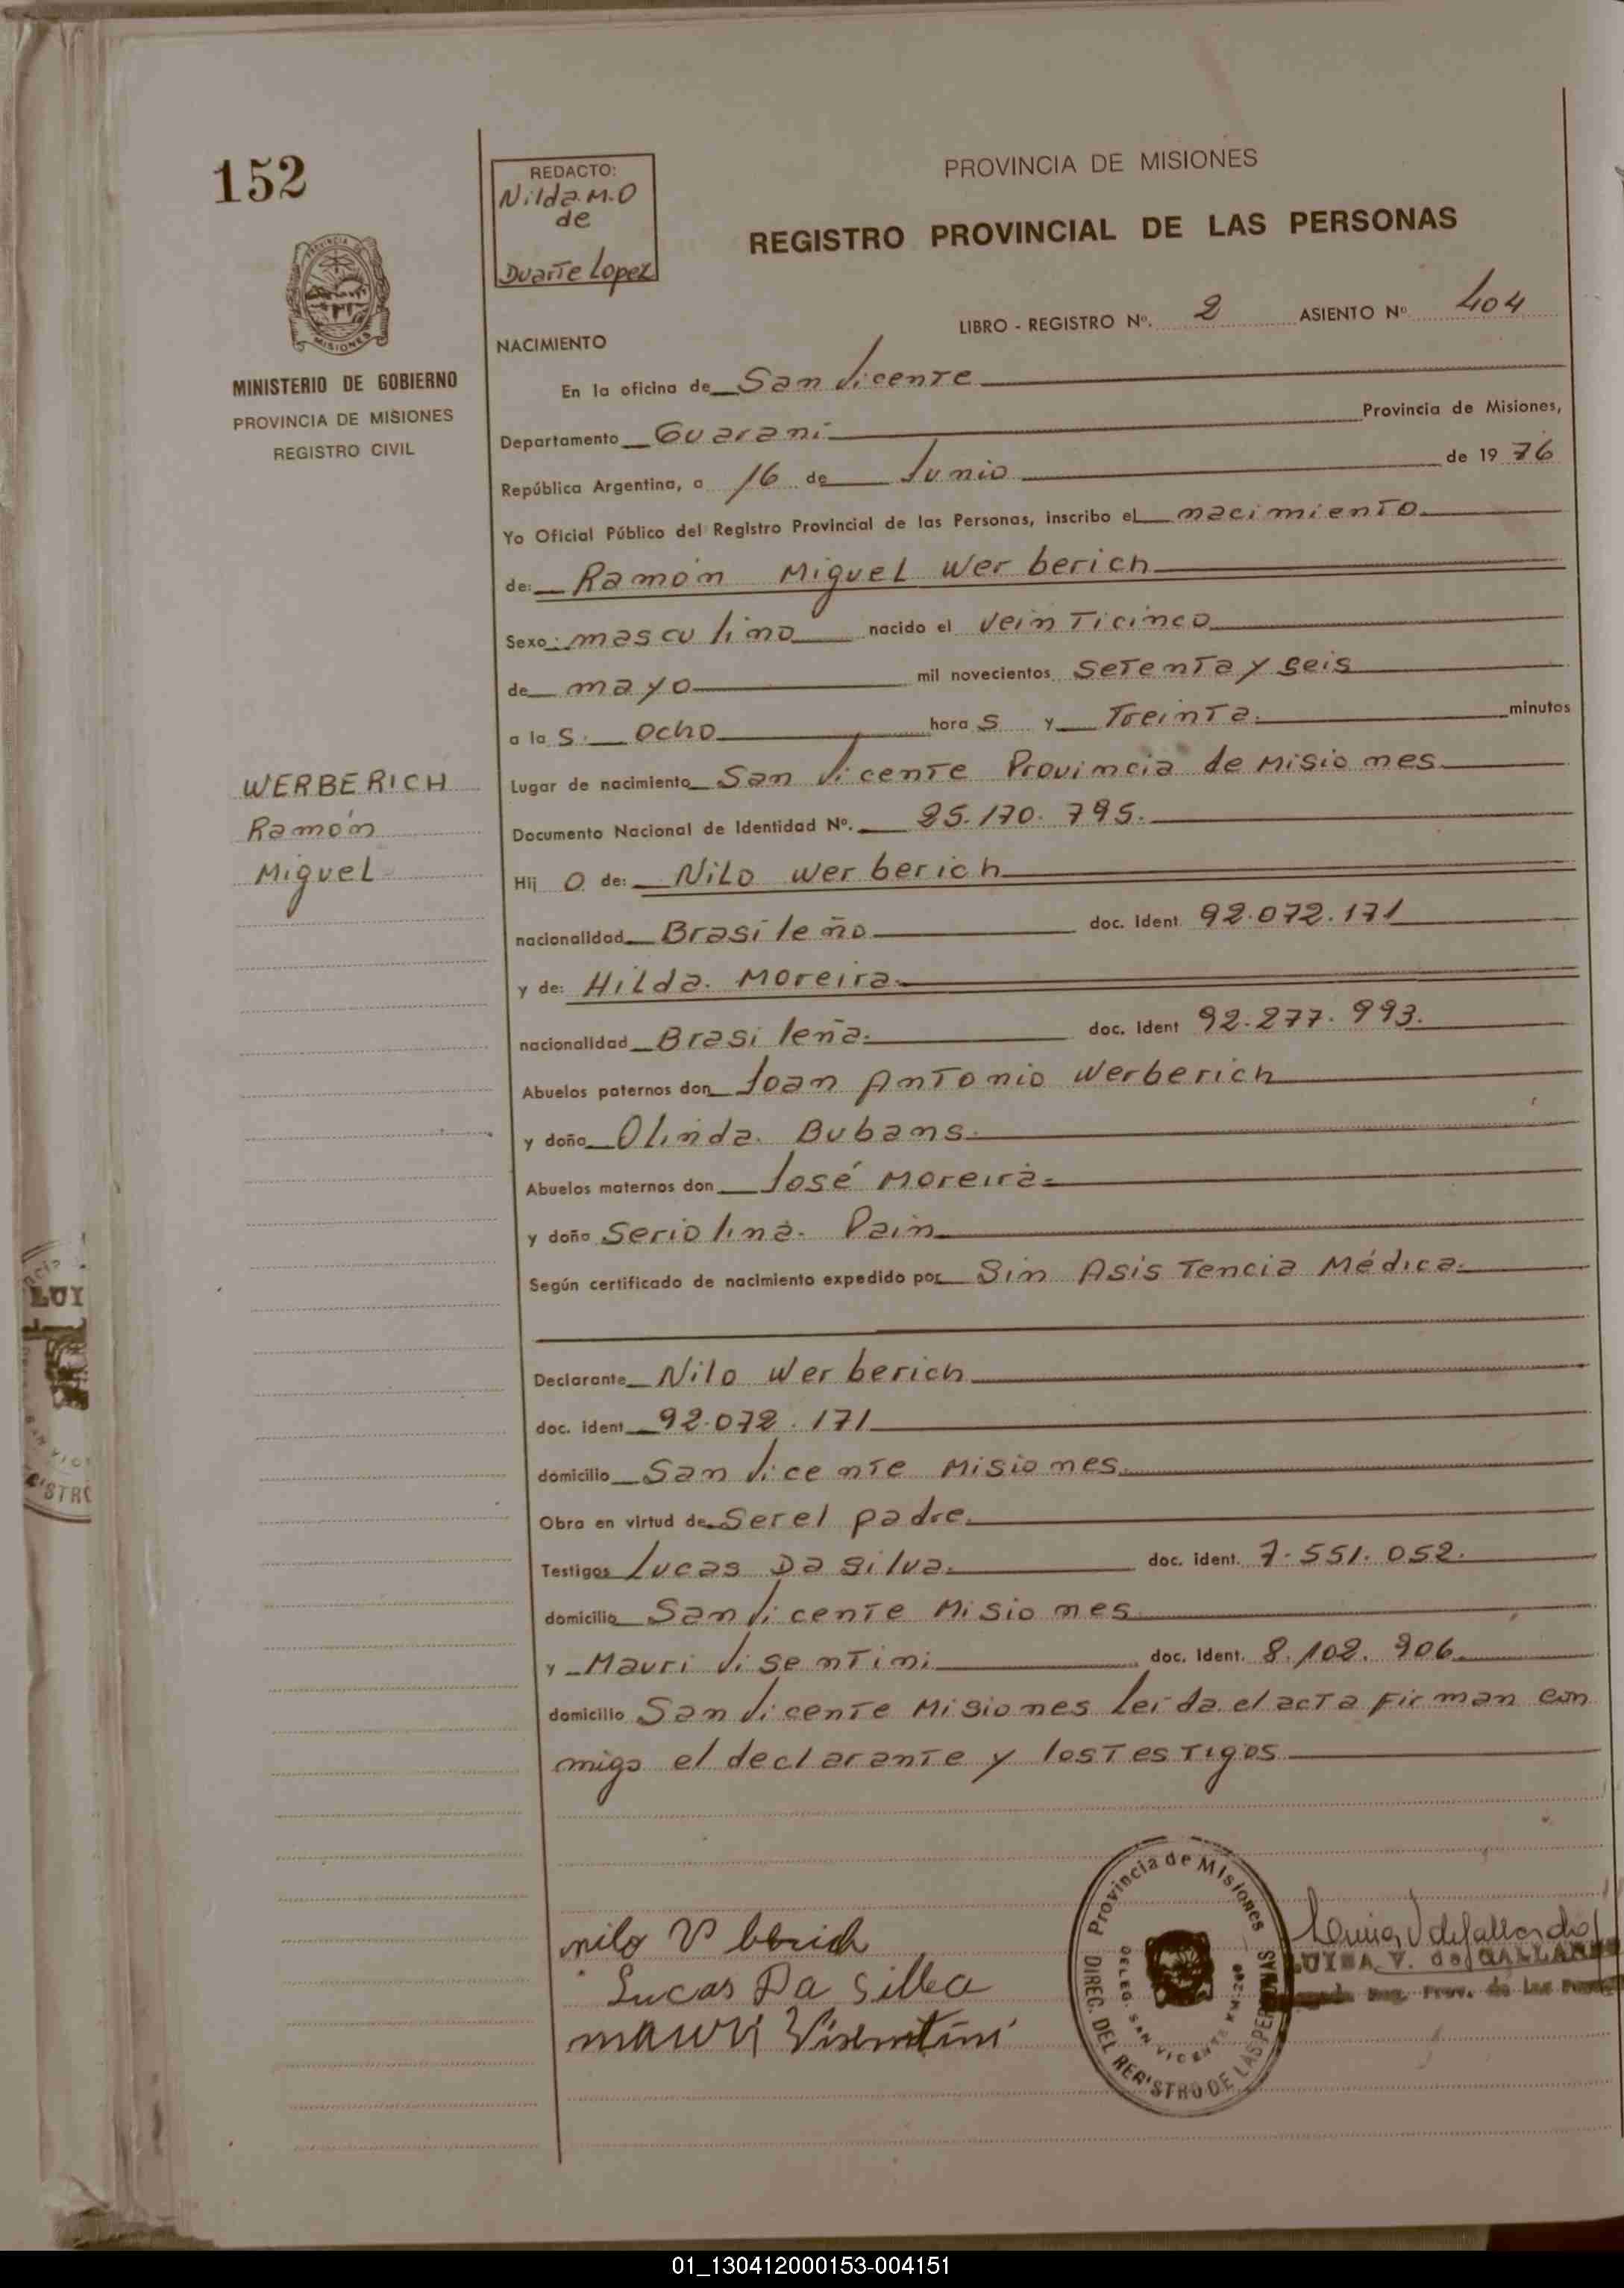 152
REDACTO:
Nilda. M. O
de
Duarte Lopez
PROVINCIA DE MISIONES
REGISTRO PROVINCIAL DE LAS PERSONAS
LIBRO - REGISTRO Nº. 2 ASIENTO Nº 404
NACIMIENTO
MISIONES
MINISTERIO DE GOBIERNO
PROVINCIA DE MISIONES
REGISTRO CIVIL
En la oficina de San Vicente
Departamento Guarani Provincia de Misiones,
República Argentina, a 16 de Junio de 1976
Yo Oficial Público del Registro Provincial de las Personas, inscribo el nacimiento
de: Ramón Miguel Werberich
Sexo: masculino nacido el veinticinco
de mayo mil novecientos setenta y seis
a las ocho horas y Treinta minutos
WERBERICH
Ramón
Miguel
Lugar de nacimiento San Vicente Provincia de Misiones
Documento Nacional de Identidad Nº. 25.170.795.
Hijo de: Nilo Werberich
nacionalidad Brasileño doc. Ident. 92.072.171
y de: Hilda. Moreira.
nacionalidad Brasileña. doc. Ident 92.277.993.
Abuelos paternos don Joan Antonio Werberich
y doña Olinda. Bubans.
Abuelos maternos don José Moreira.
y doña Seriolina. Pain
Según certificado de nacimiento expedido por Sin Asistencia Médica.
Declarante Nilo Werberich
doc. ident 92.072.171
domicilio San Vicente Misiones.
Obra en virtud de Ser el padre.
Testigos Lucas Da Silva. doc. ident. 7.551.052.
domicilio San Vicente Misiones
y Mauri Visentini doc. Ident. 8.102.906
domicilio San Vicente Misiones Leida el acta Firman con
migo el declarante y los Testigos
Lucas Da Silba
mauri Visentini
Provincia de Misiones
DIREC. DEL REGISTRO DE LAS PERSONAS
DELEG. SAN VICENTE
LUISA V. de GALLARDO
01_130412000153-004151